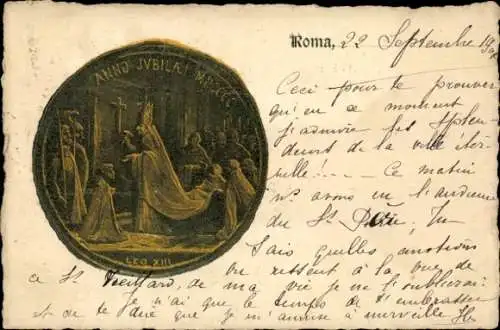 Roma, 22 Septembre 19
ANNO JVBILÆI MDCCCC
Ceci pour te prouver
qu'en ce moment
j'admire les splen-
deurs de la ville éter-
nelle!... Ce matin
ns. avons eu l'audience
du St Père, Tu
LEO XIII
Sais quelles émotions
on ressent à la vue de
ce St Vieillard, de ma vie je ne l'oublierai
Je n'ai que le temps de t'embrasser
et de te dire que je m'amuse à merveille